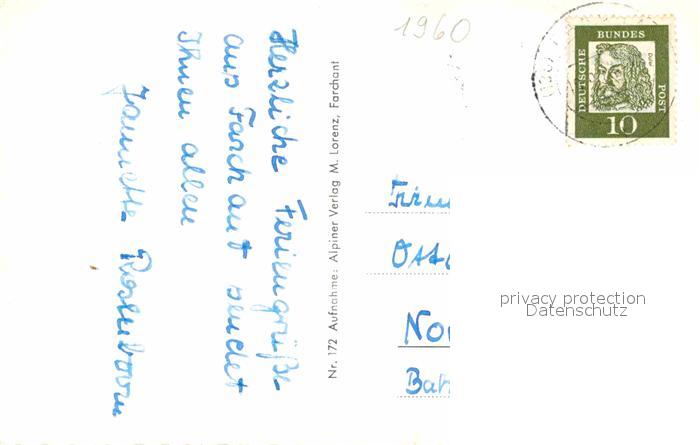 1960
DEUTSCHE
BUNDES
POST
Dürer
10
Herzliche Feriengrüße
aus Farchant sendet
Ihnen allen
Rosenboom
Nr. 172 Aufnahme: Alpiner Verlag M. Lorenz, Farchant
Otto
No
Bah
privacy protection
Datenschutz